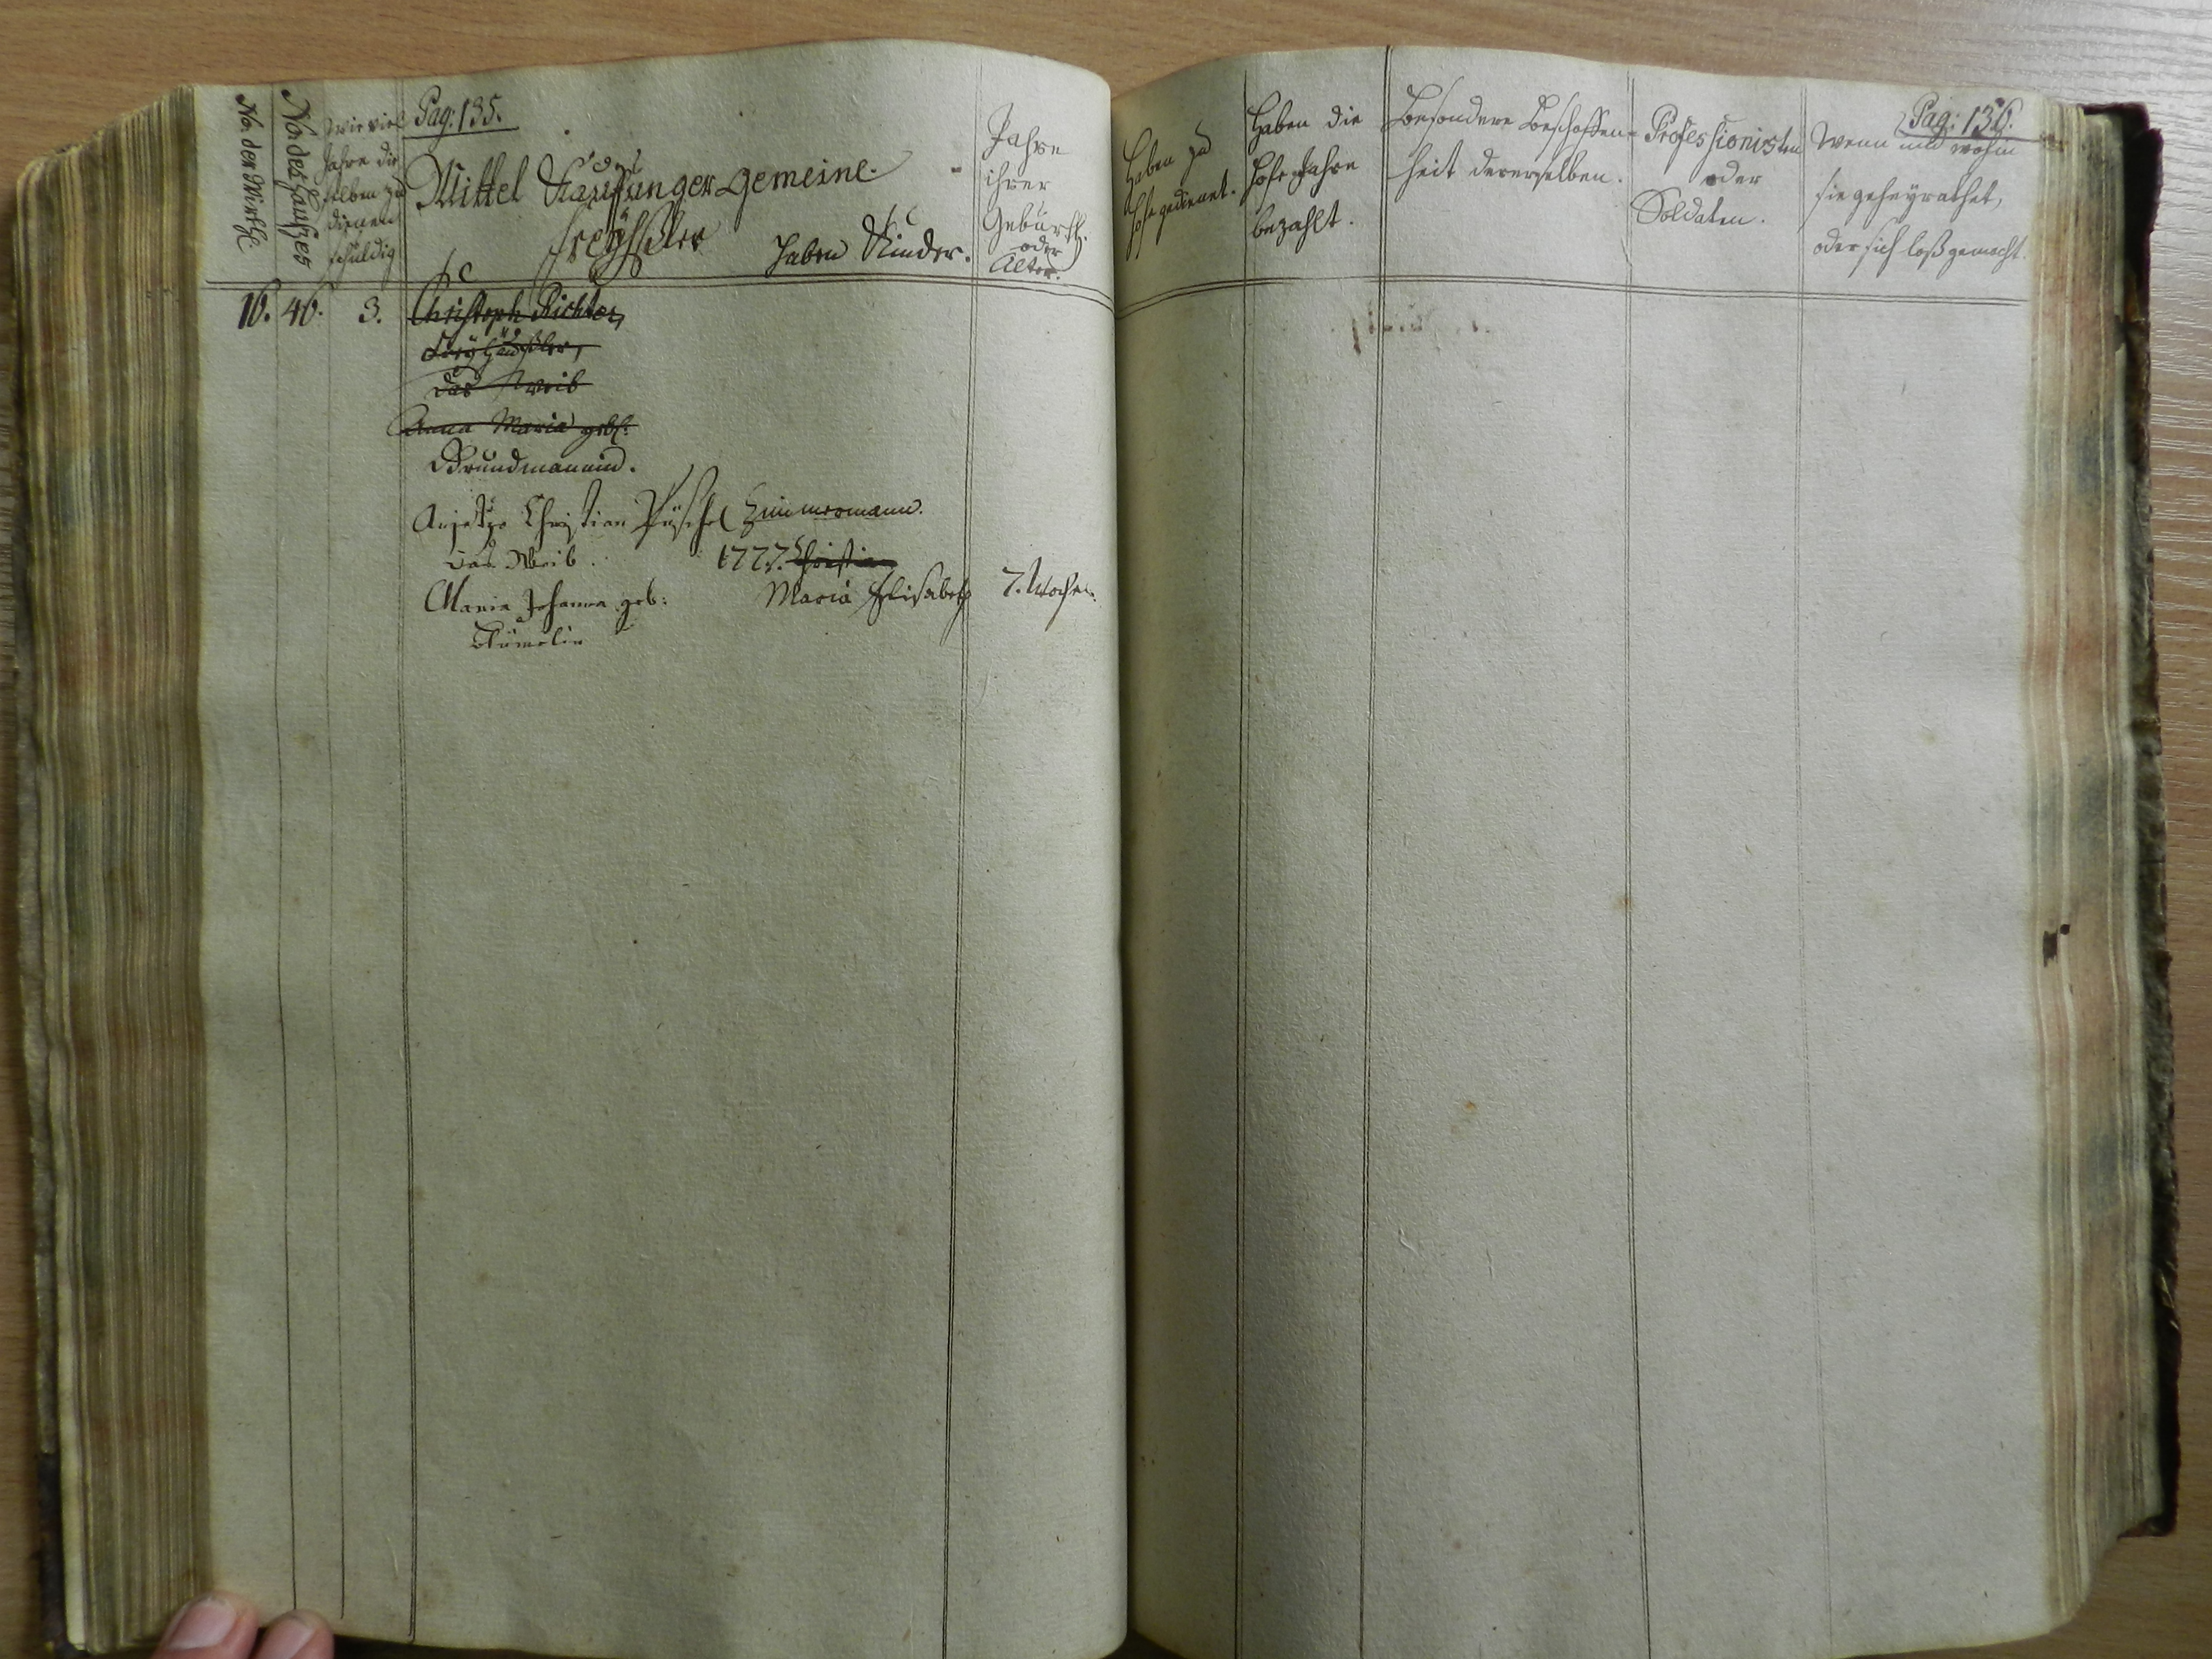 No. der Wirthe
No. des Haußes
Wie viel
Jahre die
selben zu
dienen
schuldig
Pag: 135.
Mittel Kauffunger Gemeine.
Freyhäußler
haben Kinder.
Jahre
ihrer
Geburth.
oder
Alter.
16. 46. 3. Christoph Richter,
Freyhäußler,
das Weib
Anna Maria gebh:
Grundmannin.
Anjetzo Christian Püschel Zimmermann.
das Weib. 1777. Christian
Maria Johanna geb: Maria Elisabeth 7. Wochen.
Blümelin
Haben zu
Hofe gedienet.
Haben die
Hofe Jahre
bezahlt.
Besondere Beschaffen-
heit dererselben.
Professionisten
oder
Soldaten.
Pag: 136.
Wenn und wohin
sie geheyrathet,
oder sich loß gemacht.